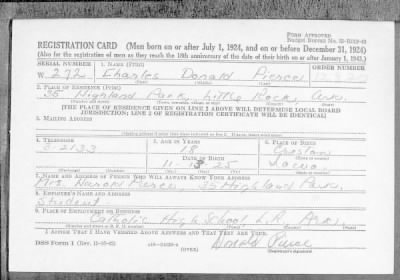 Form Approved
Budget Bureau No. 33-R019-42
REGISTRATION CARD (Men born on or after July 1, 1924, and on or before December 31, 1924)
(Also for the registration of men as they reach the 18th anniversary of the date of their birth on or after January 1, 1943.)
SERIAL NUMBER 1. NAME (Print) ORDER NUMBER
W 272 Charles Donald Pierce
2. PLACE OF RESIDENCE (Print)
35 Highland Park, Little Rock, Ark.
[THE PLACE OF RESIDENCE GIVEN ON LINE 2 ABOVE WILL DETERMINE LOCAL BOARD
JURISDICTION; LINE 2 OF REGISTRATION CERTIFICATE WILL BE IDENTICAL]
3. MAILING ADDRESS
4. TELEPHONE 5. AGE IN YEARS 6. PLACE OF BIRTH
3-2133 18 Creston
DATE OF BIRTH
11-13 25 Iowa
7. NAME AND ADDRESS OF PERSON WHO WILL ALWAYS KNOW YOUR ADDRESS
Mrs. Harold Pierce, 35 Highland Park,
8. EMPLOYER'S NAME AND ADDRESS
Student
9. PLACE OF EMPLOYMENT OR BUSINESS
Catholic High School L.R. Ark.
I AFFIRM THAT I HAVE VERIFIED ABOVE ANSWERS AND THAT THEY ARE TRUE.
DSS Form 1 (OVER) Donald Pierce